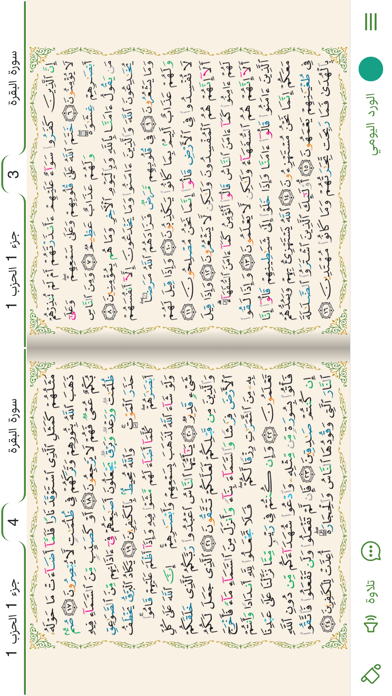 سورة البقرة
3
جزء 1 الحزب 1
إِنَّ ٱلَّذِينَ كَفَرُوا۟ سَوَآءٌ عَلَيْهِمْ ءَأَنذَرْتَهُمْ أَمْ لَمْ تُنذِرْهُمْ
لَا يُؤْمِنُونَ ٦ خَتَمَ ٱللَّهُ عَلَىٰ قُلُوبِهِمْ وَعَلَىٰ سَمْعِهِمْ وَعَلَىٰٓ
أَبْصَٰرِهِمْ غِشَٰوَةٌ وَلَهُمْ عَذَابٌ عَظِيمٌ ٧ وَمِنَ ٱلنَّاسِ
مَن يَقُولُ ءَامَنَّا بِٱللَّهِ وَبِٱلْيَوْمِ ٱلْءَاخِرِ وَمَا هُم بِمُؤْمِنِينَ ٨
يُخَٰدِعُونَ ٱللَّهَ وَٱلَّذِينَ ءَامَنُوا۟ وَمَا يَخْدَعُونَ إِلَّآ أَنفُسَهُمْ
وَمَا يَشْعُرُونَ ٩ فِى قُلُوبِهِم مَّرَضٌ فَزَادَهُمُ ٱللَّهُ مَرَضًا
وَلَهُمْ عَذَابٌ أَلِيمٌۢ بِمَا كَانُوا۟ يَكْذِبُونَ ١٠ وَإِذَا قِيلَ لَهُمْ
لَا تُفْسِدُوا۟ فِى ٱلْأَرْضِ قَالُوٓا۟ إِنَّمَا نَحْنُ مُصْلِحُونَ ١١
أَلَآ إِنَّهُمْ هُمُ ٱلْمُفْسِدُونَ وَلَٰكِن لَّا يَشْعُرُونَ ١٢ وَإِذَا قِيلَ
لَهُمْ ءَامِنُوا۟ كَمَآ ءَامَنَ ٱلنَّاسُ قَالُوٓا۟ أَنُؤْمِنُ كَمَآ ءَامَنَ ٱلسُّفَهَآءُ
أَلَآ إِنَّهُمْ هُمُ ٱلسُّفَهَآءُ وَلَٰكِن لَّا يَعْلَمُونَ ١٣ وَإِذَا لَقُوا۟
ٱلَّذِينَ ءَامَنُوا۟ قَالُوٓا۟ ءَامَنَّا وَإِذَا خَلَوْا۟ إِلَىٰ شَيَٰطِينِهِمْ قَالُوٓا۟ إِنَّا
مَعَكُمْ إِنَّمَا نَحْنُ مُسْتَهْزِءُونَ ١٤ ٱللَّهُ يَسْتَهْزِئُ بِهِمْ وَيَمُدُّهُمْ
فِى طُغْيَٰنِهِمْ يَعْمَهُونَ ١٥ أُو۟لَٰٓئِكَ ٱلَّذِينَ ٱشْتَرَوُا۟ ٱلضَّلَٰلَةَ
بِٱلْهُدَىٰ فَمَا رَبِحَت تِّجَٰرَتُهُمْ وَمَا كَانُوا۟ مُهْتَدِينَ ١٦
سورة البقرة
4
جزء 1 الحزب 1
مَثَلُهُمْ كَمَثَلِ ٱلَّذِى ٱسْتَوْقَدَ نَارًا فَلَمَّآ أَضَآءَتْ مَا حَوْلَهُۥ
ذَهَبَ ٱللَّهُ بِنُورِهِمْ وَتَرَكَهُمْ فِى ظُلُمَٰتٍ لَّا يُبْصِرُونَ ١٧ صُمٌّۢ
بُكْمٌ عُمْىٌ فَهُمْ لَا يَرْجِعُونَ ١٨ أَوْ كَصَيِّبٍ مِّنَ ٱلسَّمَآءِ فِيهِ
ظُلُمَٰتٌ وَرَعْدٌ وَبَرْقٌ يَجْعَلُونَ أَصَٰبِعَهُمْ فِىٓ ءَاذَانِهِم مِّنَ ٱلصَّوَٰعِقِ
حَذَرَ ٱلْمَوْتِ وَٱللَّهُ مُحِيطٌۢ بِٱلْكَٰفِرِينَ ١٩ يَكَادُ ٱلْبَرْقُ يَخْطَفُ
أَبْصَٰرَهُمْ كُلَّمَآ أَضَآءَ لَهُم مَّشَوْا۟ فِيهِ وَإِذَآ أَظْلَمَ عَلَيْهِمْ قَامُوا۟
وَلَوْ شَآءَ ٱللَّهُ لَذَهَبَ بِسَمْعِهِمْ وَأَبْصَٰرِهِمْ إِنَّ ٱللَّهَ عَلَىٰ كُلِّ
شَىْءٍ قَدِيرٌ ٢٠ يَٰٓأَيُّهَا ٱلنَّاسُ ٱعْبُدُوا۟ رَبَّكُمُ ٱلَّذِى خَلَقَكُمْ
وَٱلَّذِينَ مِن قَبْلِكُمْ لَعَلَّكُمْ تَتَّقُونَ ٢١ ٱلَّذِى جَعَلَ لَكُمُ
ٱلْأَرْضَ فِرَٰشًا وَٱلسَّمَآءَ بِنَآءً وَأَنزَلَ مِنَ ٱلسَّمَآءِ مَآءً فَأَخْرَجَ
بِهِۦ مِنَ ٱلثَّمَرَٰتِ رِزْقًا لَّكُمْ فَلَا تَجْعَلُوا۟ لِلَّهِ أَندَادًا وَأَنتُمْ
تَعْلَمُونَ ٢٢ وَإِن كُنتُمْ فِى رَيْبٍ مِّمَّا نَزَّلْنَا عَلَىٰ عَبْدِنَا
فَأْتُوا۟ بِسُورَةٍ مِّن مِّثْلِهِۦ وَٱدْعُوا۟ شُهَدَآءَكُم مِّن دُونِ ٱللَّهِ
إِن كُنتُمْ صَٰدِقِينَ ٢٣ فَإِن لَّمْ تَفْعَلُوا۟ وَلَن تَفْعَلُوا۟ فَٱتَّقُوا۟
ٱلنَّارَ ٱلَّتِى وَقُودُهَا ٱلنَّاسُ وَٱلْحِجَارَةُ أُعِدَّتْ لِلْكَٰفِرِينَ ٢٤
الورد اليومي
تلاوة